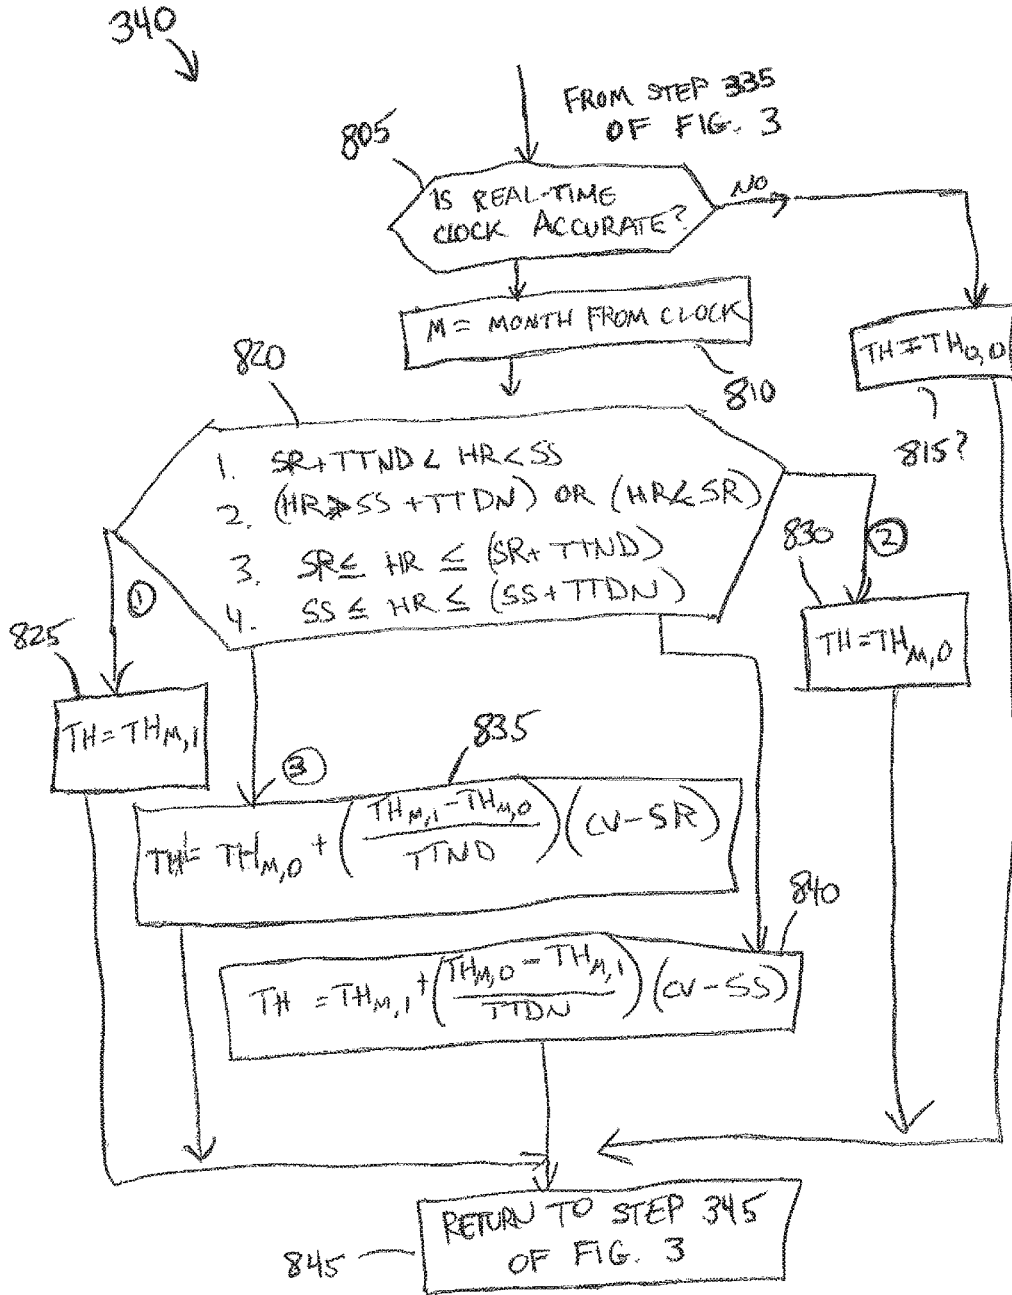 340
FROM STEP 335
OF FIG. 3
805
IS REAL-TIME
CLOCK ACCURATE?
NO
M = MONTH FROM CLOCK
810
TH = TH0,0
815?
820
1. SR+TTND < HR < SS
2. (HR > SS + TTDN) OR (HR < SR)
3. SR ≤ HR ≤ (SR+ TTND)
4. SS ≤ HR ≤ (SS+TTDN)
1
2
830
TH = THM,0
825
TH = THM,1
3
835
TH = THM,0 + (THM,1 - THM,0 / TTND) (CV-SR)
840
TH = THM,1 + (THM,0 - THM,1 / TTDN) (CV-SS)
RETURN TO STEP 345
OF FIG. 3
845